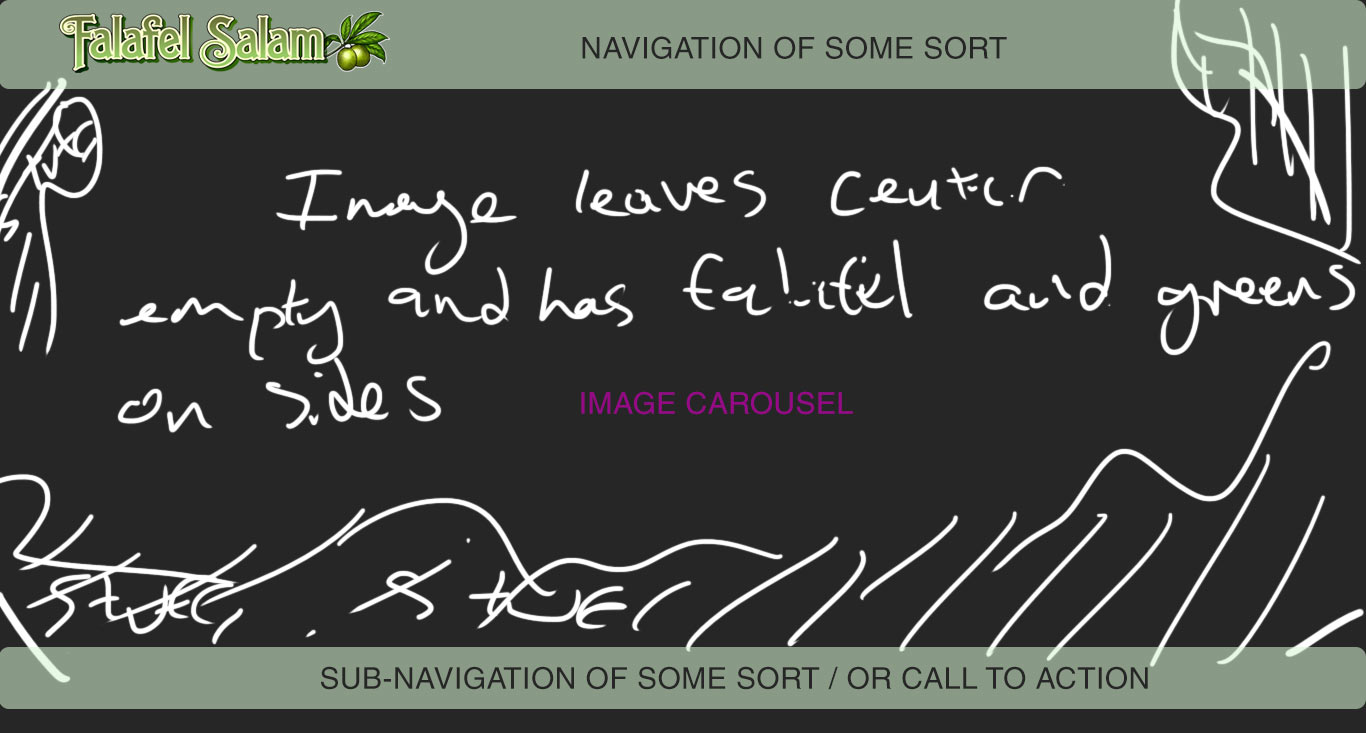 Falafel Salam
NAVIGATION OF SOME SORT
Image leaves center
empty and has falafel and greens
on sides
IMAGE CAROUSEL
SUB-NAVIGATION OF SOME SORT / OR CALL TO ACTION